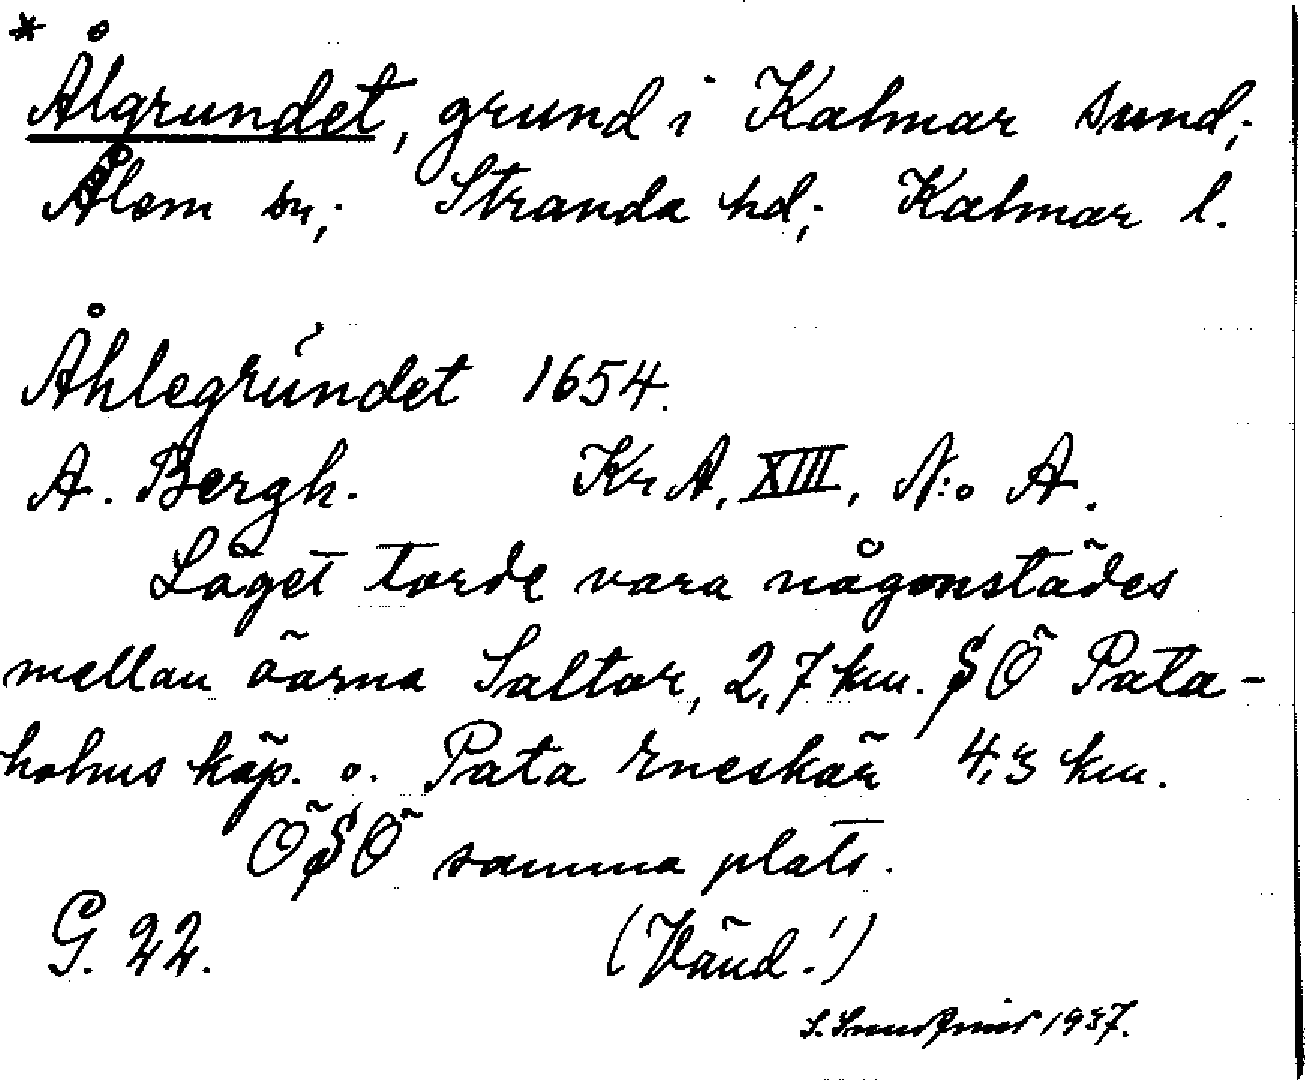 * Ålgrundet, grund i Kalmar sund;
Ålem sn; Stranda hd; Kalmar l.
Åhlegrundet 1654.
A. Bergh. KrA, XIII, N:o A.
Läget torde vara någonstädes
mellan öarna Saltor, 2,7 km. SÖ Pata-
holms köp. o. Pata Eneskär 4,3 km.
ÖSÖ samma plats.
G. 22. (Vänd!)
S. 1937.